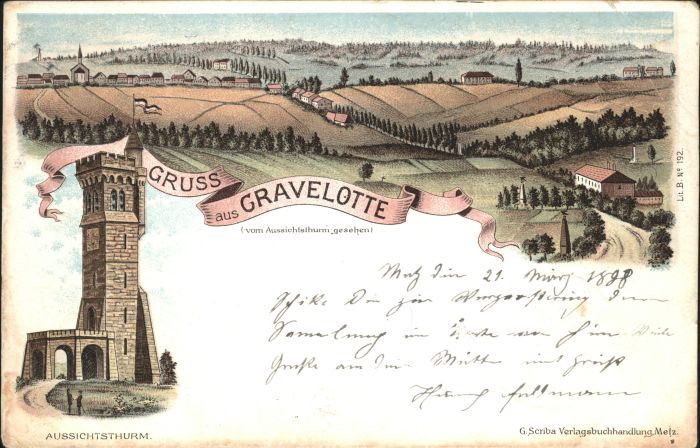 GRUSS
aus GRAVELOTTE
(vom Aussichtsthurm gesehen)
Lit. B. Nº 192.
Metz den 21. März 1898
Schike Dir zur Vergrösserung deine
Samelung im
Grüße an die Mutter und
Heinrich
AUSSICHTSTHURM.
G. Scriba Verlagsbuchhandlung, Metz.